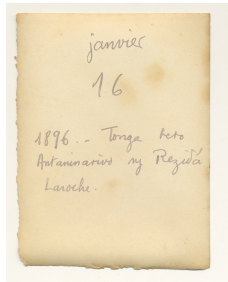 janvier
16
1896.- Tonga teto
Antaninarivo ny Rezidá
Laroche.